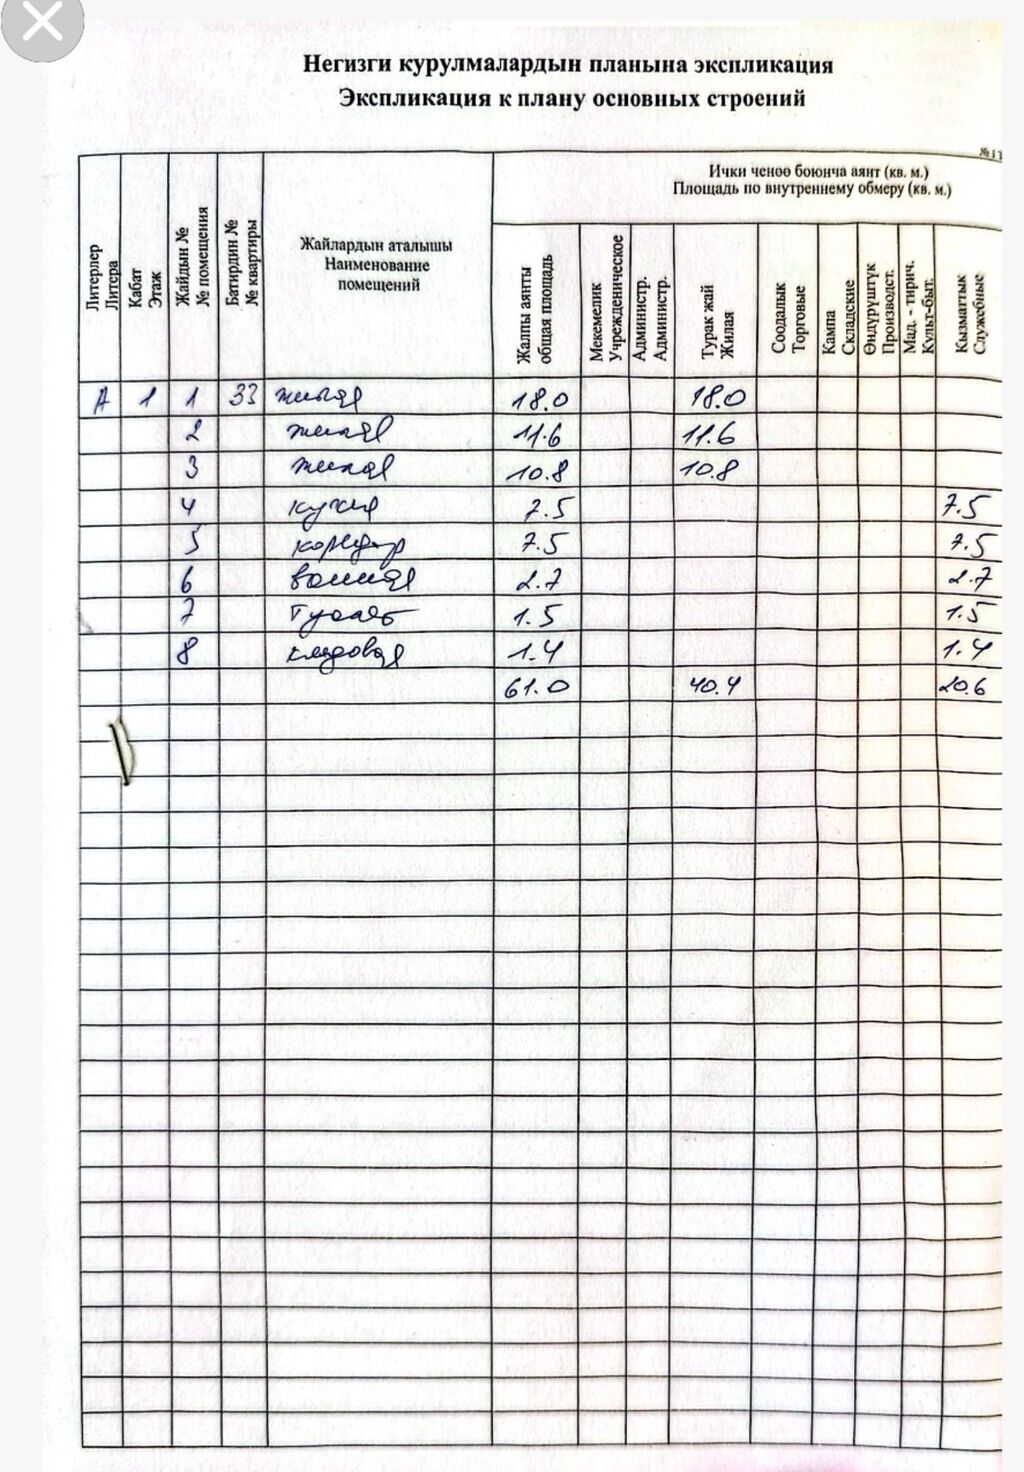 Негизги курулмалардын планына экспликация
Экспликация к плану основных строений
Ички ченөө боюнча аянт (кв. м.)
Площадь по внутреннему обмеру (кв. м.)
Литерлер
Литера
Кабат
Этаж
Жайдын №
№ помещения
Батирдин №
№ квартиры
Жайлардын аталышы
Наименование
помещений
Жалпы аянты
общая площадь
Мекемелик
Учрежденическое
Администр.
Администр.
Турак жай
Жилая
Соодалык
Торговые
Кампа
Складские
Өндүрүштүк
Производст.
Мад. - тирич.
Культ-быт.
Кызматтык
Служебные
А 1 1 33 жилая 18.0 18.0
2 жилая 11.6 11.6
3 жилая 10.8 10.8
4 кухня 7.5 7.5
5 коридор 7.5 7.5
6 ванная 2.7 2.7
7 туалет 1.5 1.5
8 кладовая 1.4 1.4
61.0 40.4 20.6